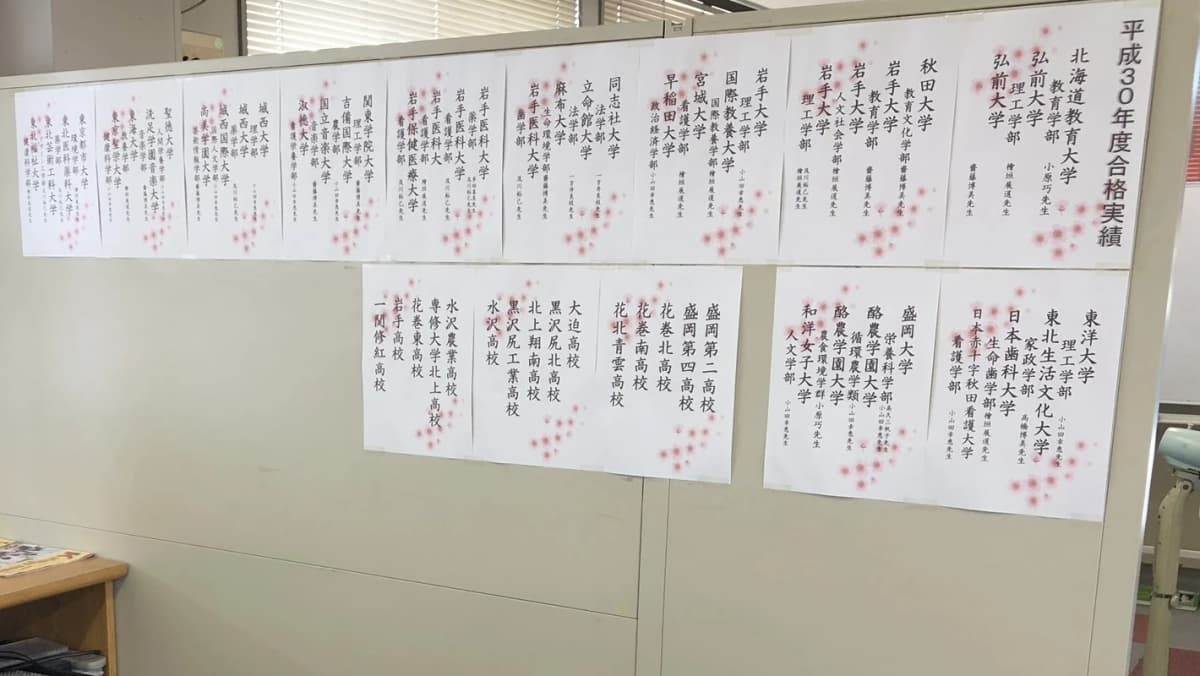 平成30年度合格実績
北海道教育大学
教育学部 小原巧先生
弘前大学
理工学部 檜垣展道先生
弘前大学
齋藤博美先生
秋田大学
教育文化学部 齋藤博美先生
岩手大学
教育学部 齋藤博美先生
岩手大学
人文社会学部 檜垣展道先生
岩手大学
理工学部 檜垣展道先生
岩手大学
理工学部 小山田幸恵先生
国際教養大学
国際教養学部 檜垣展道先生
宮城大学
看護学部 檜垣展道先生
早稲田大学
政治経済学部
同志社大学
法学部
立命館大学
法学部
麻布大学
生命環境学部 齋藤博美先生
岩手医科大学
歯学部
岩手医科大学
薬学部
岩手医科大学
看護学部
岩手医科大
看護学部
岩手保健医療大学
看護学部
関東学院大学
理工学部
吉備国際大学
農学部
国立音楽大学
音楽学部
淑徳大学
看護栄養学部
城西大学
理学部
城西大学
薬学部
城西国際大学
国際人文学部
尚美学園大学
芸術情報学部
聖徳大学
人間栄養学部
洗足学園音楽大学
音楽学部
東海大学
東京聖栄大学
健康栄養学部
東京都市大学
環境学部
東北医科薬科大学
薬学部
東北芸術工科大学
東北福祉大学
健康科学部
東洋大学
理工学部 小山田幸恵先生
東北生活文化大学
家政学部 高橋博美先生
日本歯科大学
生命歯学部 檜垣展道先生
日本赤十字秋田看護大学
看護学部 小山田幸恵先生
盛岡大学
栄養科学部
酪農学園大学
循環農学類 小山田幸恵先生
酪農学園大学
農食環境学群 小原巧先生
和洋女子大学
人文学部 小山田幸恵先生
盛岡第二高校
盛岡第四高校
花巻北高校
花巻南高校
花北青雲高校
大迫高校
黒沢尻北高校
北上翔南高校
黒沢尻工業高校
水沢高校
水沢農業高校
専修大学北上高校
花巻東高校
岩手高校
一関修紅高校